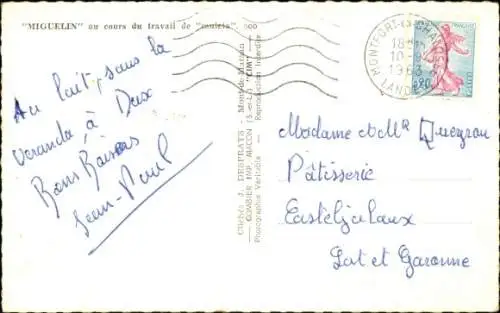 "MIGUELIN" au cours du travail de "muleta". 300
Au lait, sans la
veranda à Dax
Bons Baisers
Jean-Paul
Clichés J. DESPRATS - Mont-de-Marsan
COMBIER IMP. MACON (S.-et-L.) "CIM"
Photographie Véritable - Reproduction Interdite
MONTFORT-CHALOSSE
18H
10-9
1963
LANDES
FRANÇAISE
0,20
Madame et Mr Queyron
Pâtisserie
Casteljaloux
Lot et Garonne